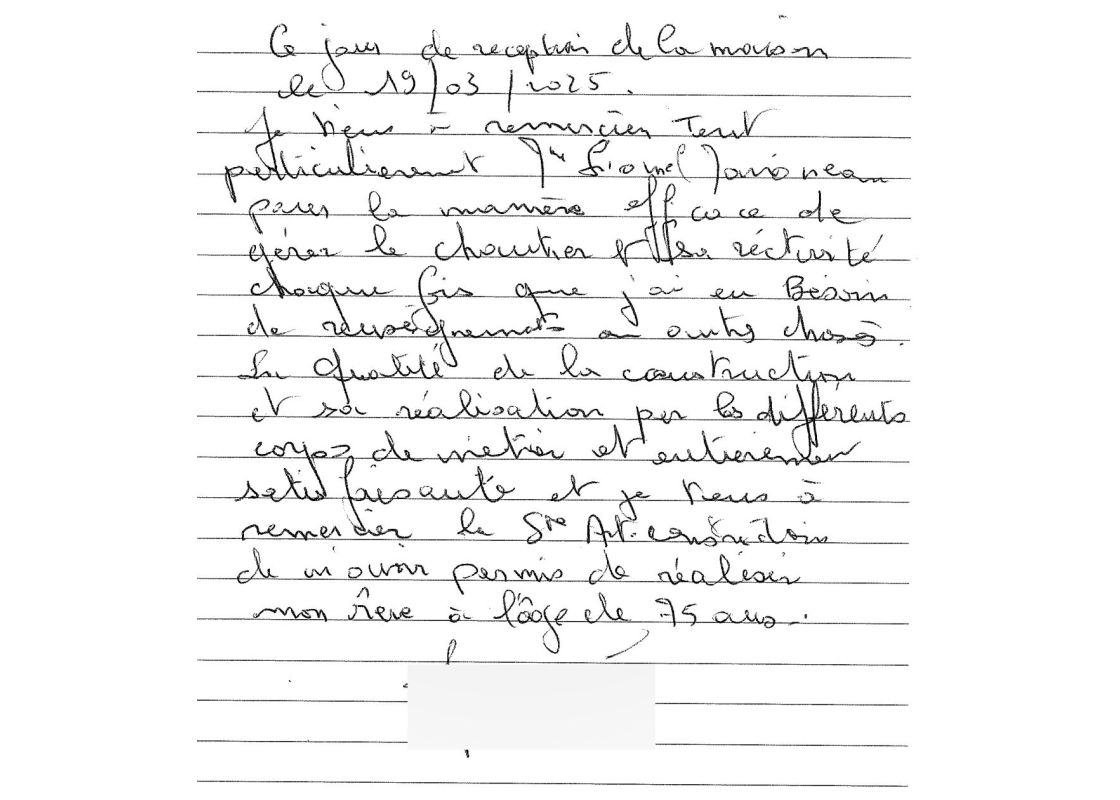 Ce jour de reception de la maison
le 19/03/2025.
Je tiens à remercier Tout
particulierement Mr Lionel Javioneau
pour la manière efficace de
gérer le chantier et sa réctivité
chaque fois que j'ai eu Besoin
de renseignements ou autres choses.
La Qualité de la construction
et sa réalisation par les différents
corps de métier est entierement
satisfaisante et je tiens à
remercier la Sté Art. construction
de m'avoir permis de réaliser
mon rêve à l'âge de 75 ans.